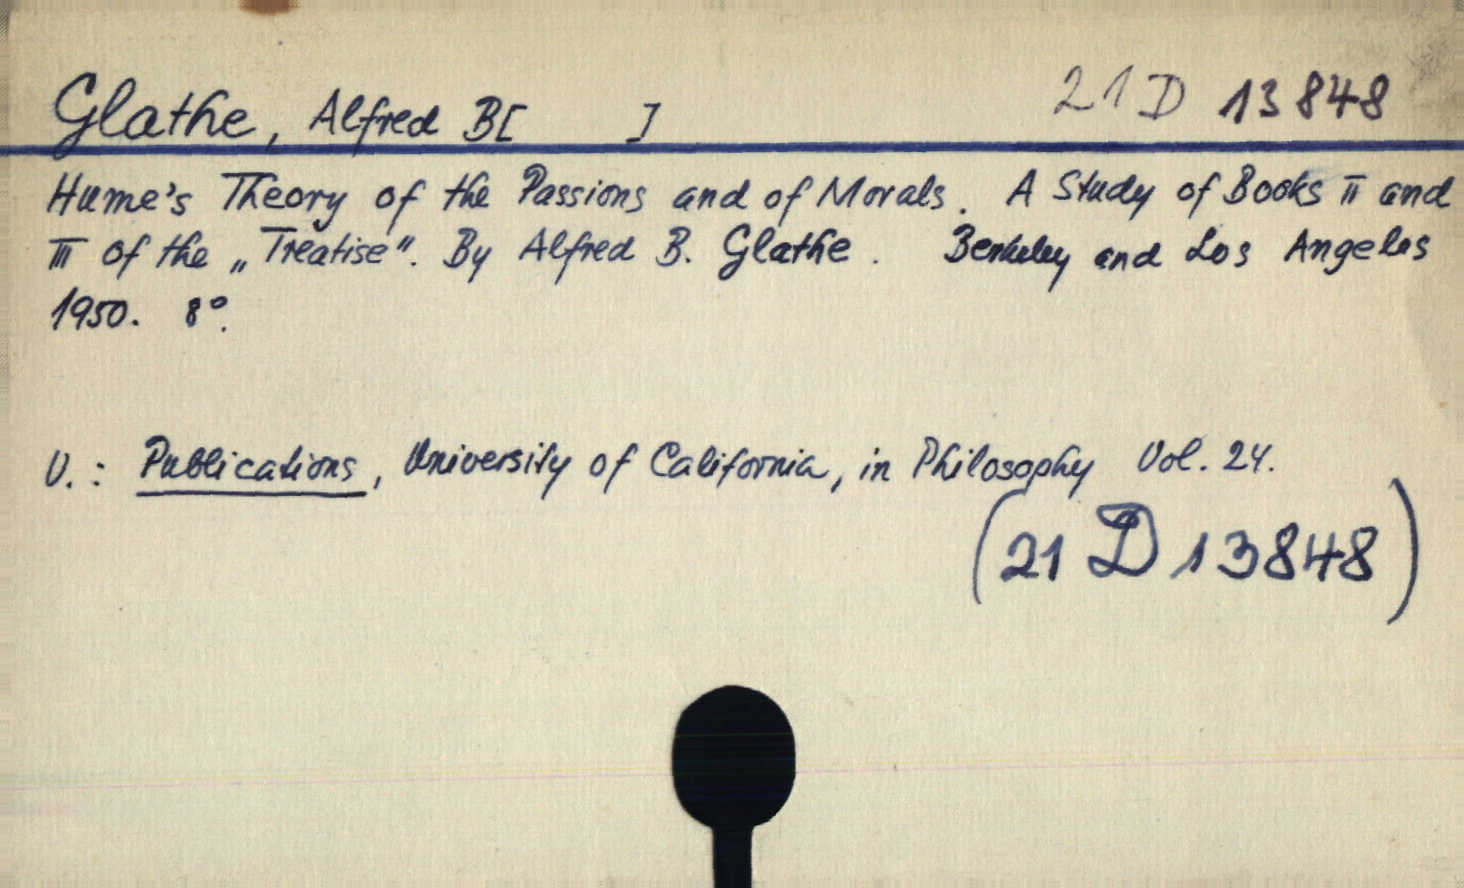 Glathe, Alfred B[ ] 21 D 13 848
Hume's Theory of the Passions and of Morals. A Study of Books II and
III of the „Treatise". By Alfred B. Glathe. Berkeley and Los Angeles
1950. 8°.
V.: Publications, University of California, in Philosophy Vol. 24.
(21 D 13848)